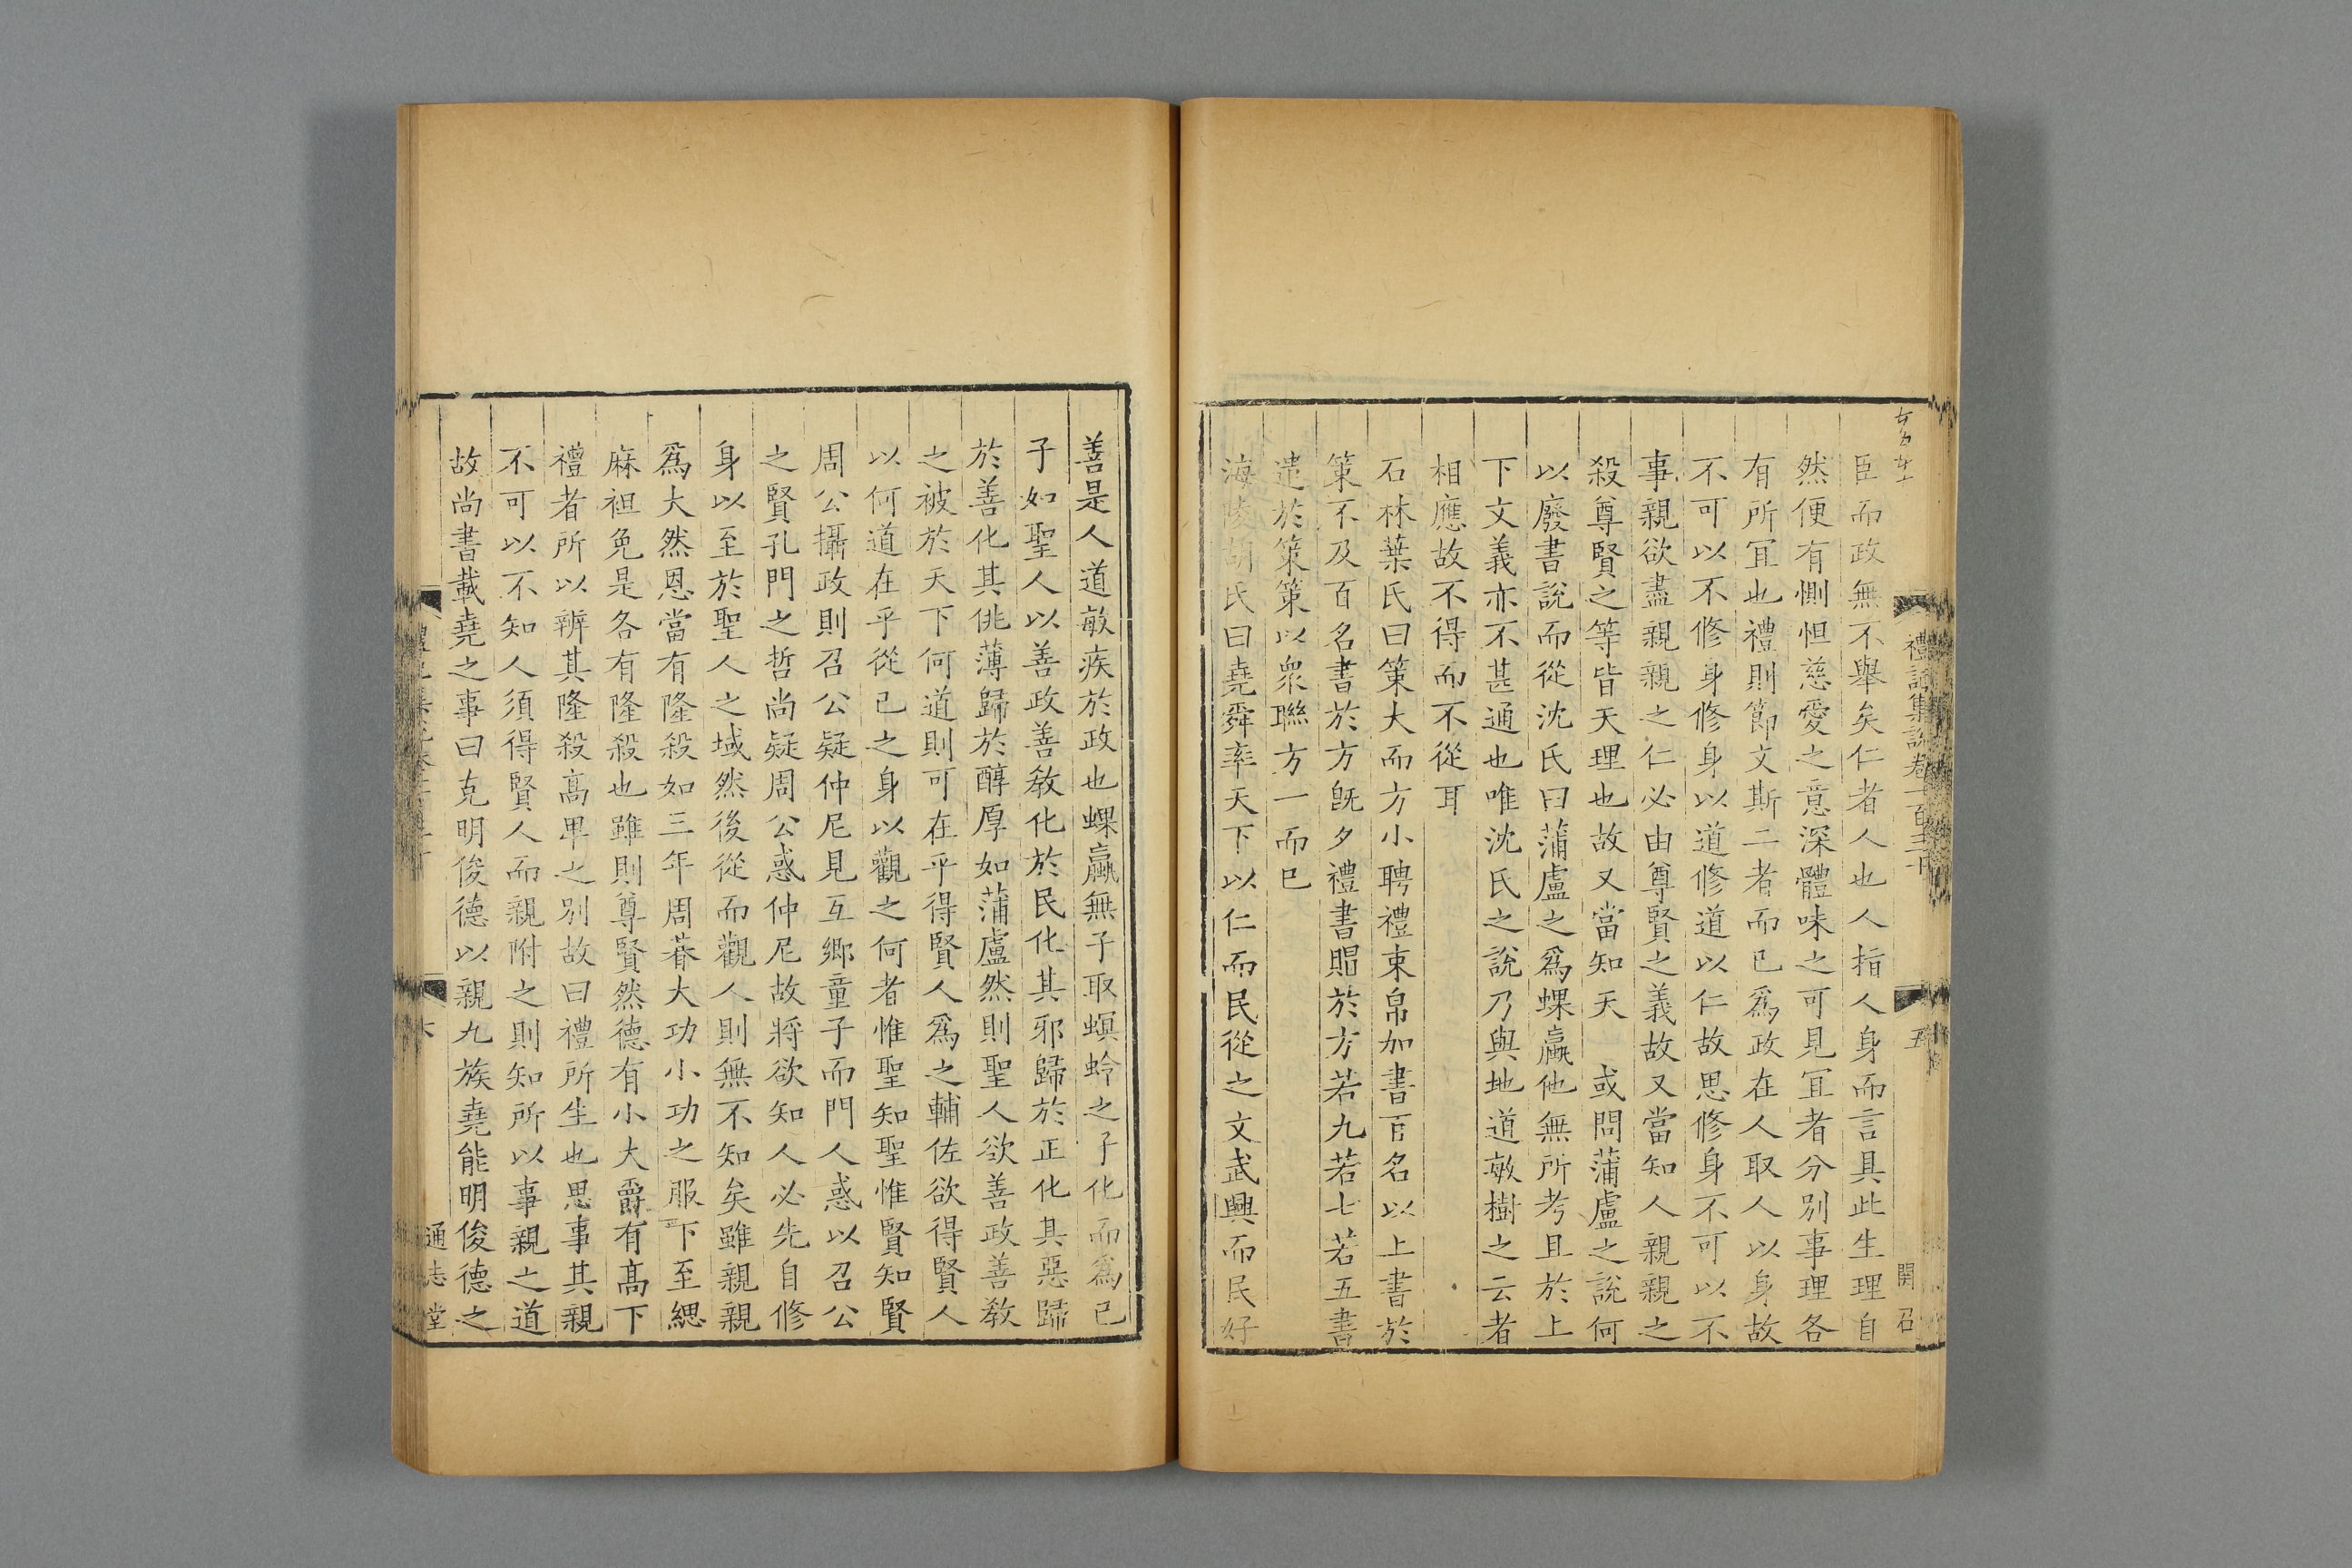 禮記集說卷一百三十
五
開召
臣而政無不舉矣仁者人也人指人身而言具此生理自
然便有惻怛慈愛之意深體味之可見冝者分別事理各
有所冝也禮則節文斯二者而已爲政在人取人以身故
不可以不修身修身以道修道以仁故思修身不可以不
事親欲盡親親之仁必由尊賢之義故又當知人親親之
殺尊賢之等皆天理也故又當知天 或問蒲盧之說何
以廢書說而從沈氏曰蒲盧之爲蜾蠃他無所考且於上
下文義亦不甚通也唯沈氏之說乃與地道敏樹之云者
相應故不得而不從耳
石林葉氏曰策大而方小聘禮束帛加書百名以上書於
策不及百名書於方旣夕禮書賵於方若九若七若五書
遣於策策以衆聯方一而已
海陵胡氏曰堯舜率天下以仁而民從之文武興而民好
善是人道敏疾於政也蜾蠃無子取螟蛉之子化而爲已
子如聖人以善政善敎化於民化其邪歸於正化其惡歸
於善化其佻薄歸於醇厚如蒲盧然則聖人欲善政善敎
之被於天下何道則可在乎得賢人爲之輔佐欲得賢人
以何道在乎從已之身以觀之何者惟聖知聖惟賢知賢
周公攝政則召公疑仲尼見互鄉童子而門人惑以召公
之賢孔門之哲尚疑周公惑仲尼故將欲知人必先自修
身以至於聖人之域然後從而觀人則無不知矣雖親親
爲大然恩當有隆殺如三年周朞大功小功之服下至緦
麻袒免是各有隆殺也雖則尊賢然德有小大爵有高下
禮者所以辨其隆殺高卑之別故曰禮所生也思事其親
不可以不知人須得賢人而親附之則知所以事親之道
故尚書載堯之事曰克明俊德以親九族堯能明俊德之
通志堂